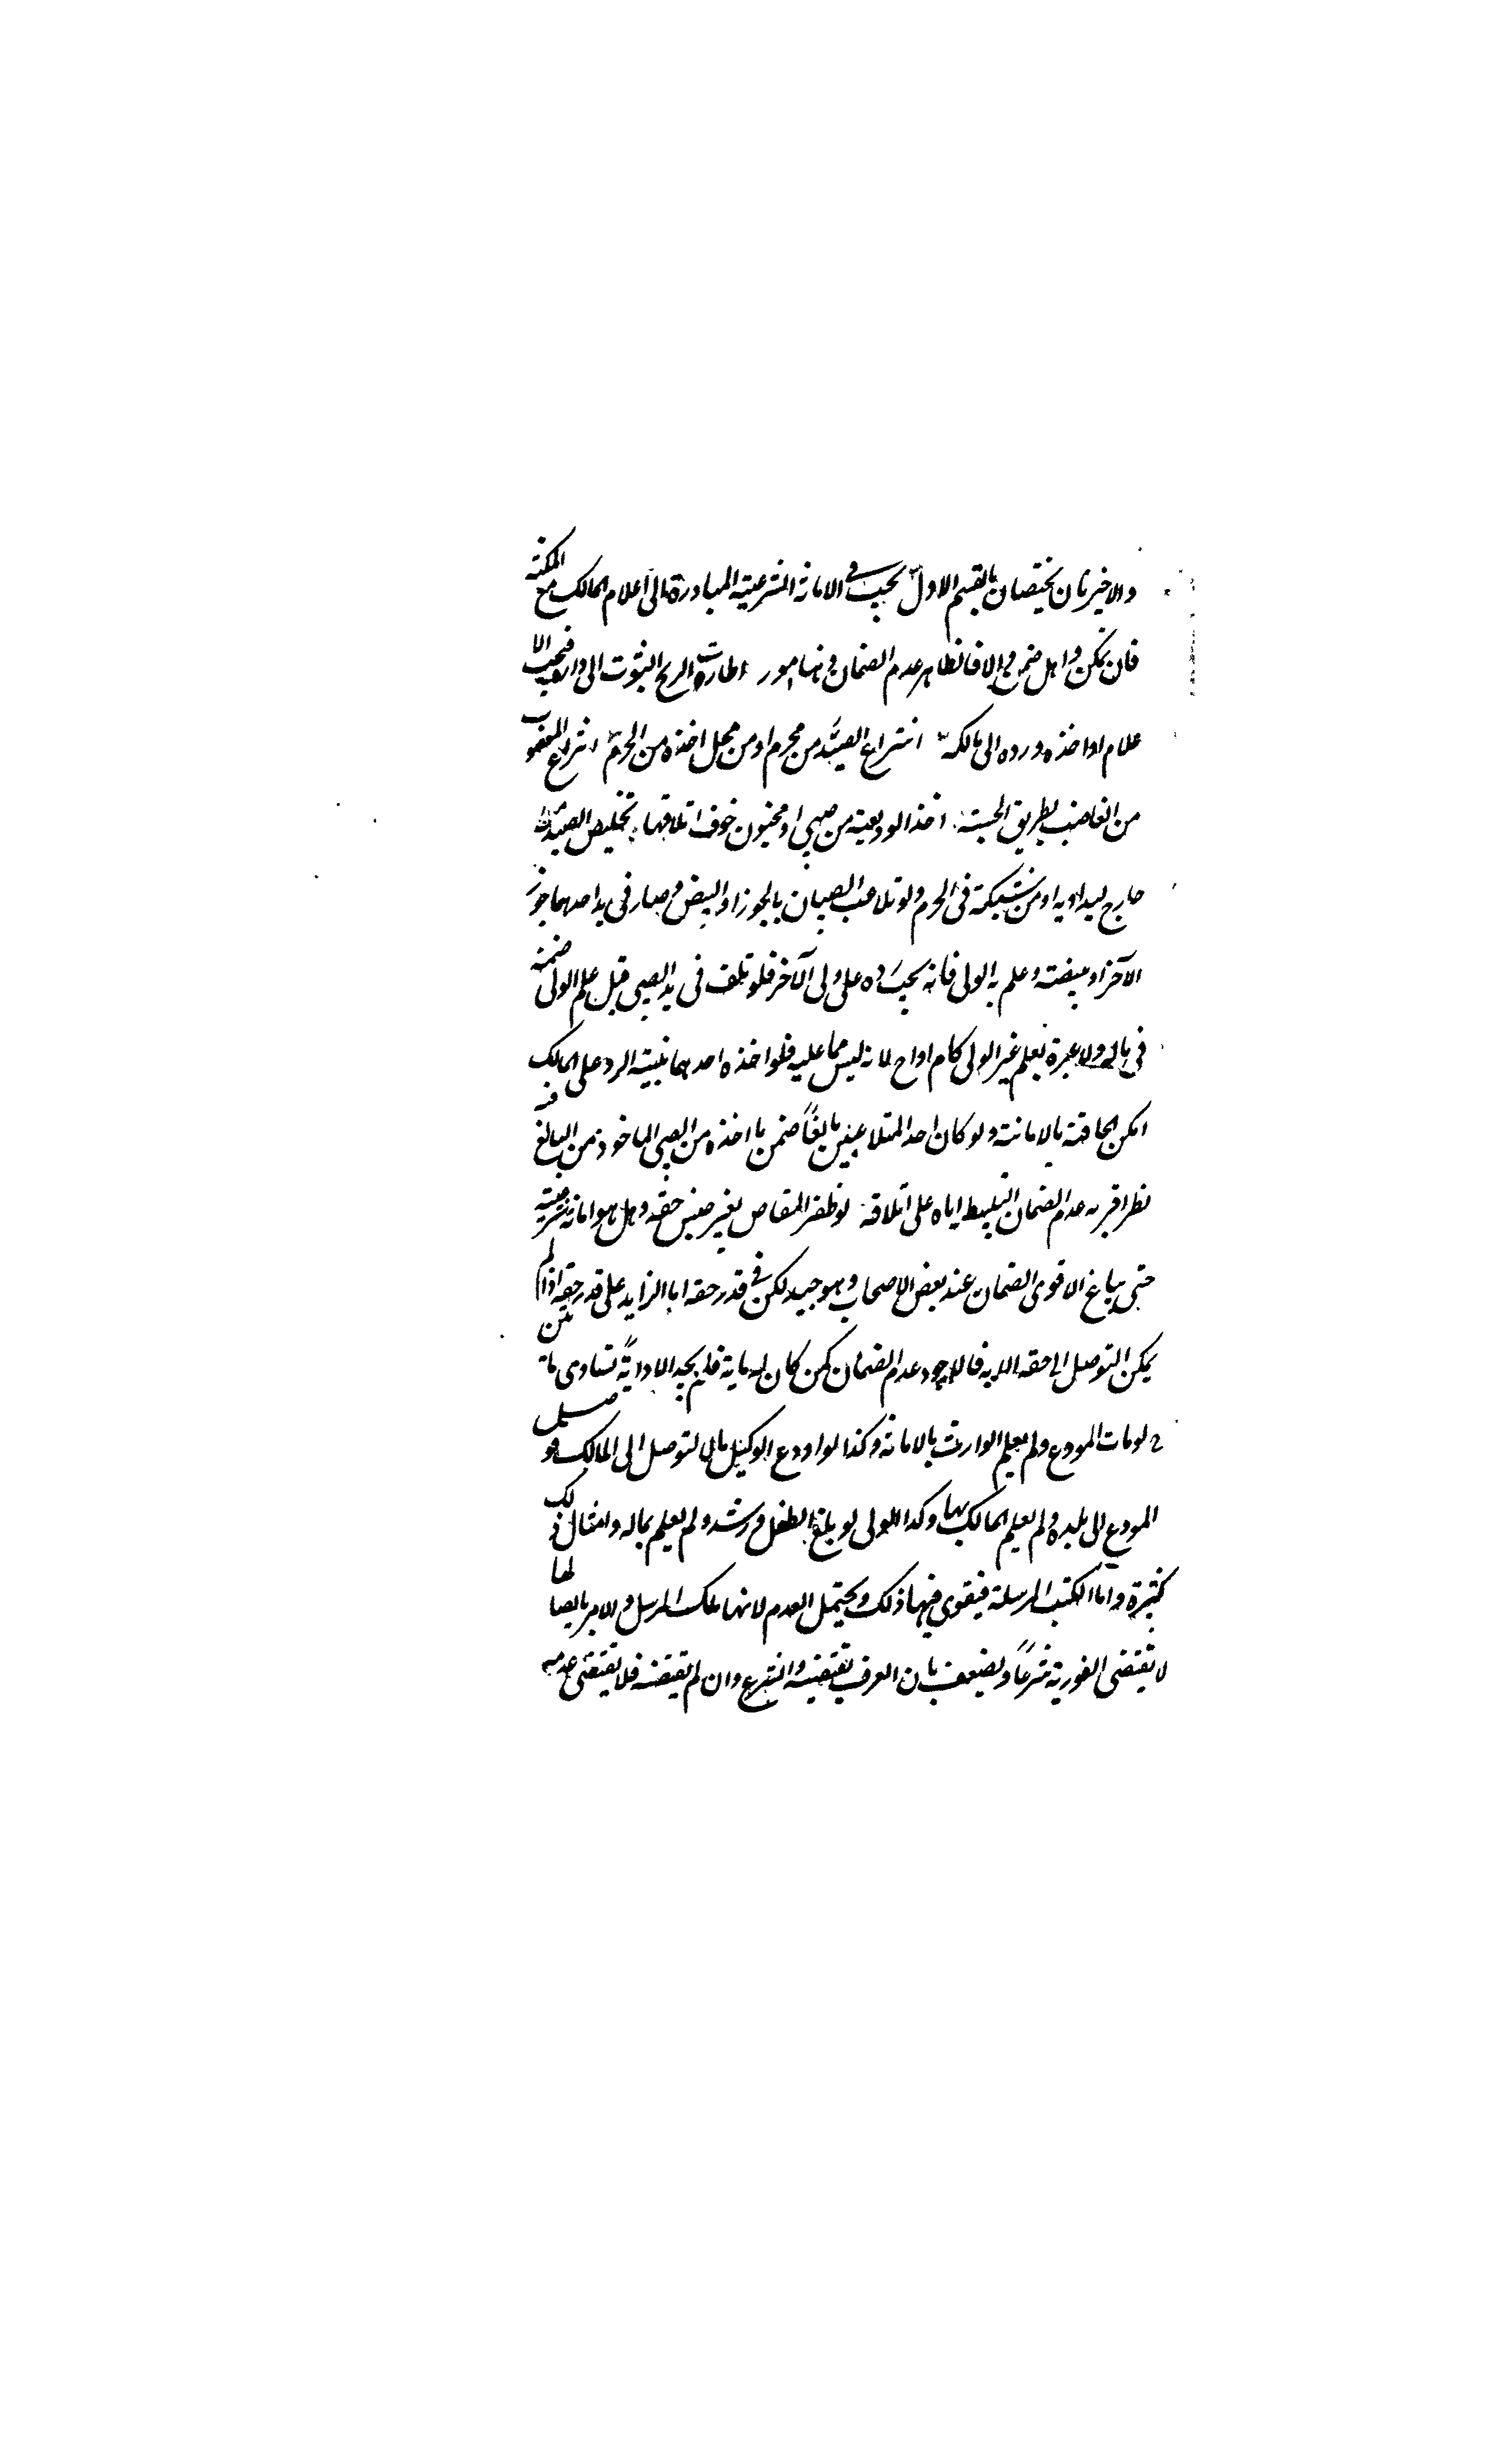 والاخيران يختصان بالقسم الاول يجب فى الامانة الشرعية المبادرة الى اعلام المالك مع المكنة
فان تمكن واهمل ضمن والا فالظاهر عدم الضمان وهنا امور اطارت الريح الثوب الى داره فيجب الا
علام او اخذه ورده الى مالكه انتزاع الصيد من محرم او من محل اخذه من الحرم انتزاع المغصوب
من الغاصب بطريق الحسبة اخذ الوديعة من صبى او مجنون خوف اتلافها تخليص الصيد من
جارح ليداويه او من شبكة فى الحرم ولو تلاعب الصبيان بالجوز او البيض وصار فى يد احدهما جوز
الآخر او بيضته وعلم به الولى فانه يجب رده على ولى الآخر فلو تلف فى يد الصبى قبل علم الولى ضمنه
فى ماله ولا عبرة بعلم غير الولى كام او اخ لانه ليس مما عليه فلو اخذه احدهما بنية الرد على المالك
امكن الحاقه بالامانة ولو كان احد المتلاعبين بالغاً ضمن ما اخذه من الصبى الماخوذ من البالغ فيه
نظر اقربه عدم الضمان لتسليطه اياه على اتلافه لو ظفر المقاص بغير جنس حقه وهل هو امانة شرعية
حتى يباع الاقوى الضمان عند بعض الاصحاب وهو جيد لكن فى قدر حقه اما الزايد على قدر حقه اذا لم
يمكن التوصل الى حقه الا به فالاجود عدم الضمان كمن كان له ماية فلم يجد الا دابةً تساوى مائتين
لو مات المودع ولم يعلم الوارث بالامانة وكذا لو اودع الوكيل مالا لتوصل الى المالك فوصل
المودع الى بلده ولم يعلم المالك بها وكذا الولى لو بلغ الطفل ورشد ولم يعلم بماله وامثال ذلك
كثيرة واما الكتب المرسلة فيقوى فيها ذلك ويحتمل العدم لانها ملك المرسل والامر بايصالها
لا يقتضى الفورية شرعاً ويضعف بان العرف يقتضيه والشرع وان لم يقتضه فلا يقتضى عدمه